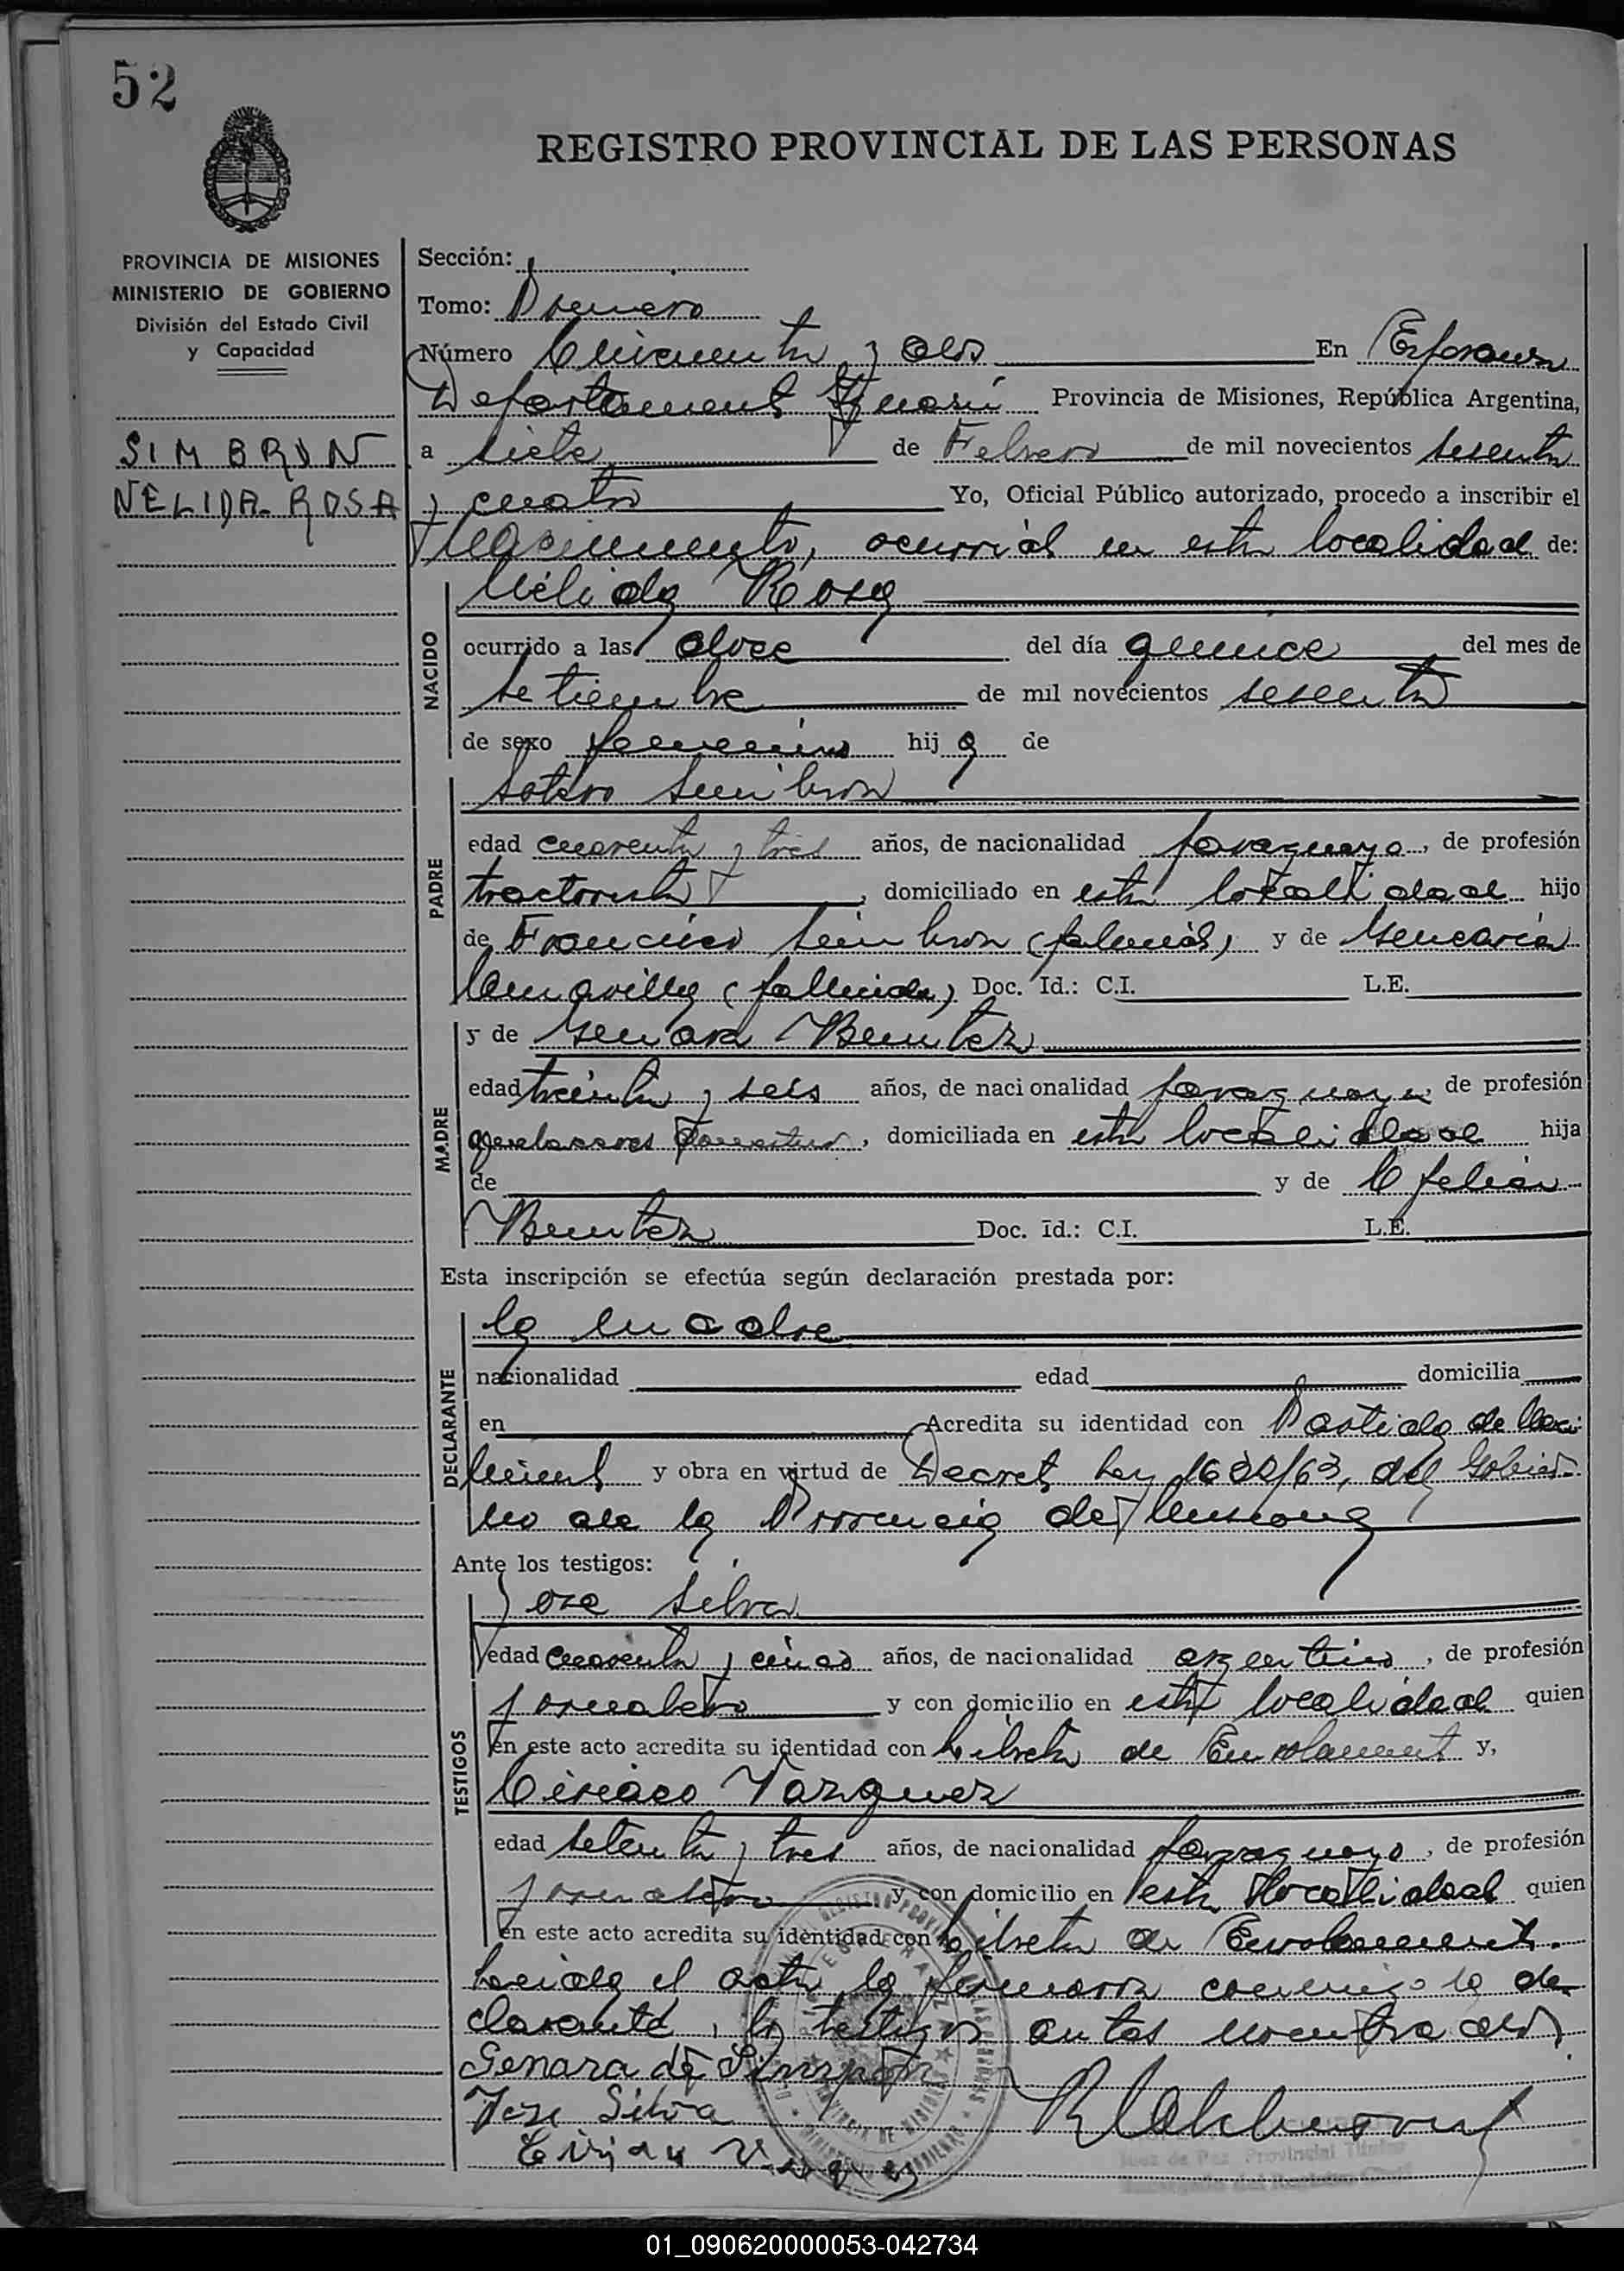 52
REGISTRO PROVINCIAL DE LAS PERSONAS
PROVINCIA DE MISIONES
MINISTERIO DE GOBIERNO
División del Estado Civil
y Capacidad
SIMBRON
NELIDA ROSA
Sección:
Tomo: Primero
Número Cincuenta y dos En Esperanza
Departamento Iguazú Provincia de Misiones, República Argentina,
a siete de Febrero de mil novecientos sesenta
y cuatro Yo, Oficial Público autorizado, procedo a inscribir el
Nacimiento, ocurrido en esta localidad de:
NACIDO
Nélida Rosa
ocurrido a las doce del día quince del mes de
setiembre de mil novecientos sesenta
de sexo femenino hij a de
PADRE
Sotero Simbron
edad cuarenta y tres años, de nacionalidad paraguaya, de profesión
tractorista, domiciliado en esta localidad hijo
de Francisco Simbron (fallecido) y de Genearia
(fallecida) Doc. Id.: C.I. L.E.
MADRE
y de Genara Benitez
edad treinta y seis años, de nacionalidad paraguaya de profesión
quehaceres domesticos, domiciliada en esta localidad hija
de y de Ofelia
Benitez Doc. Id.: C.I. L.E.
Esta inscripción se efectúa según declaración prestada por:
DECLARANTE
la madre
nacionalidad edad domicilia
en Acredita su identidad con Partida de Naci
miento y obra en virtud de Decreto Ley /63, del Gobier-
no de la Provincia de Misiones
Ante los testigos:
TESTIGOS
Jose Silva
edad cuarenta y cinco años, de nacionalidad argentino, de profesión
jornalero y con domicilio en esta localidad quien
en este acto acredita su identidad con Libreta de Enrolamiento y,
Ciriaco Vazquez
edad setenta y tres años, de nacionalidad paraguayo, de profesión
jornalero y con domicilio en esta localidad quien
en este acto acredita su identidad con Libreta de Enrolamiento.
Leida el acta la firmaron conmigo la de-
clarante y los testigos antes nombrados
Genara de Simbron
Jose Silva
Juez de Paz Provincial Titular
01_090620000053-042734